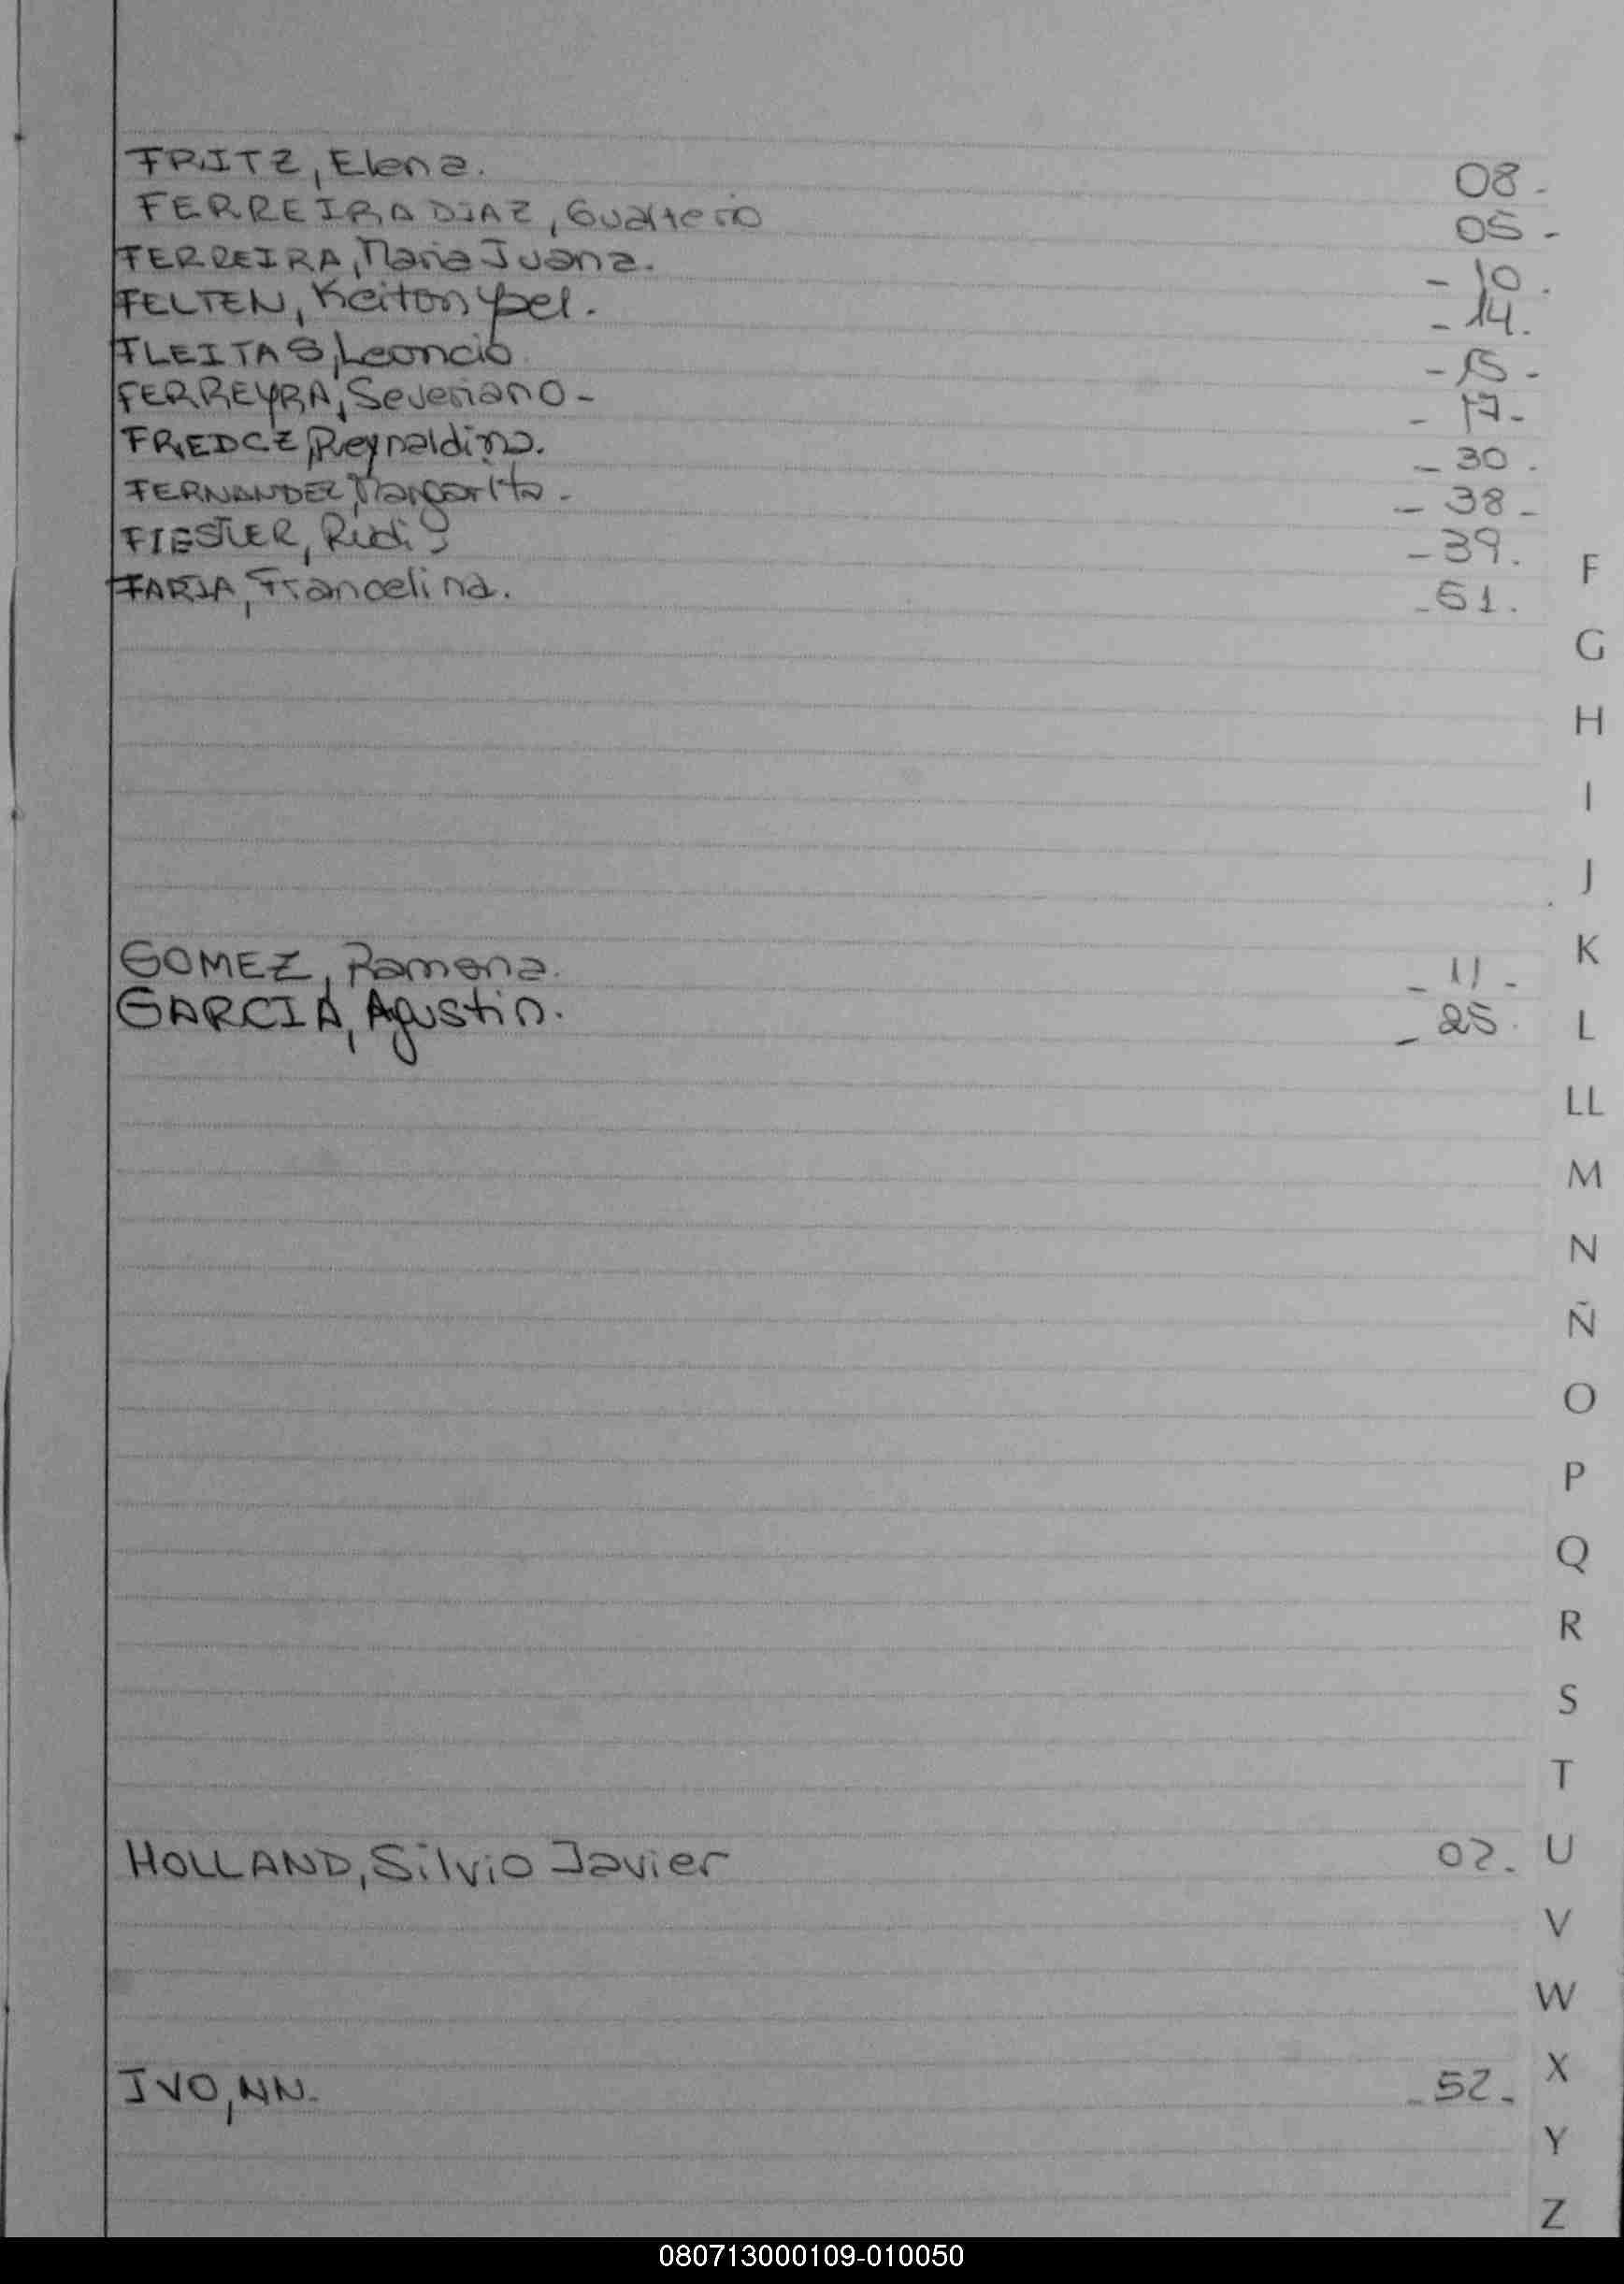 FRITZ, Elena. 08.
FERREIRA DIAZ, Gualterio 05.
FERREIRA, Maria Juana. - 10.
FELTEN, Keiton Ypel. - 14.
FLEITAS, Leoncio - 15.
FERREYRA, Severiano - - 17.
FREDCZ, Reynaldino. - 30.
FERNANDEZ, Margarita. - 38.
FIESTLER, Rudi - 39.
FARIA, Francelina. - 51.
F
G
H
I
J
K
GOMEZ, Ramona. - 11.
GARCIA, Agustin. - 25.
L
LL
M
N
Ñ
O
P
Q
R
S
T
U
HOLLAND, Silvio Javier 02.
V
W
X
IVO, NN. - 52.
Y
Z
080713000109-010050